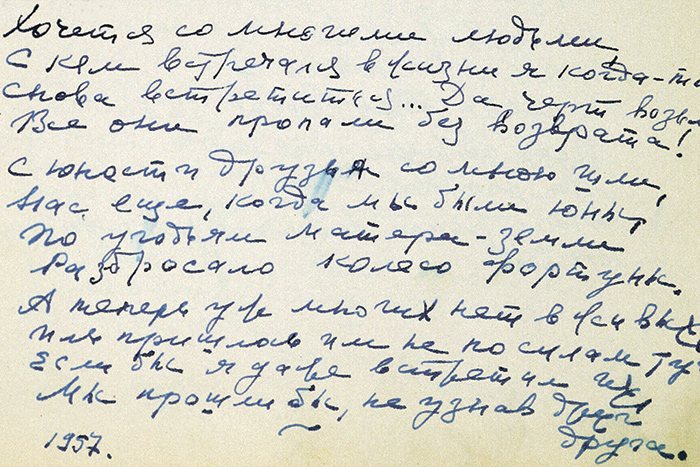 Хочется со многими людьми,
С кем встречался в жизни я когда-то
Снова встретиться... Да черт возьми
Все они пропали без возврата!
С юности друзья со мною шли,
Нас еще, когда мы были юны,
По угодьям матери-земли
Разбросало колесо фортуны.
А теперь уж многих нет в живых
Иль пришлось им не по силам ту
Если бы я даже встретил их,
Мы прошли бы, не узнав друг
друга.
1957.